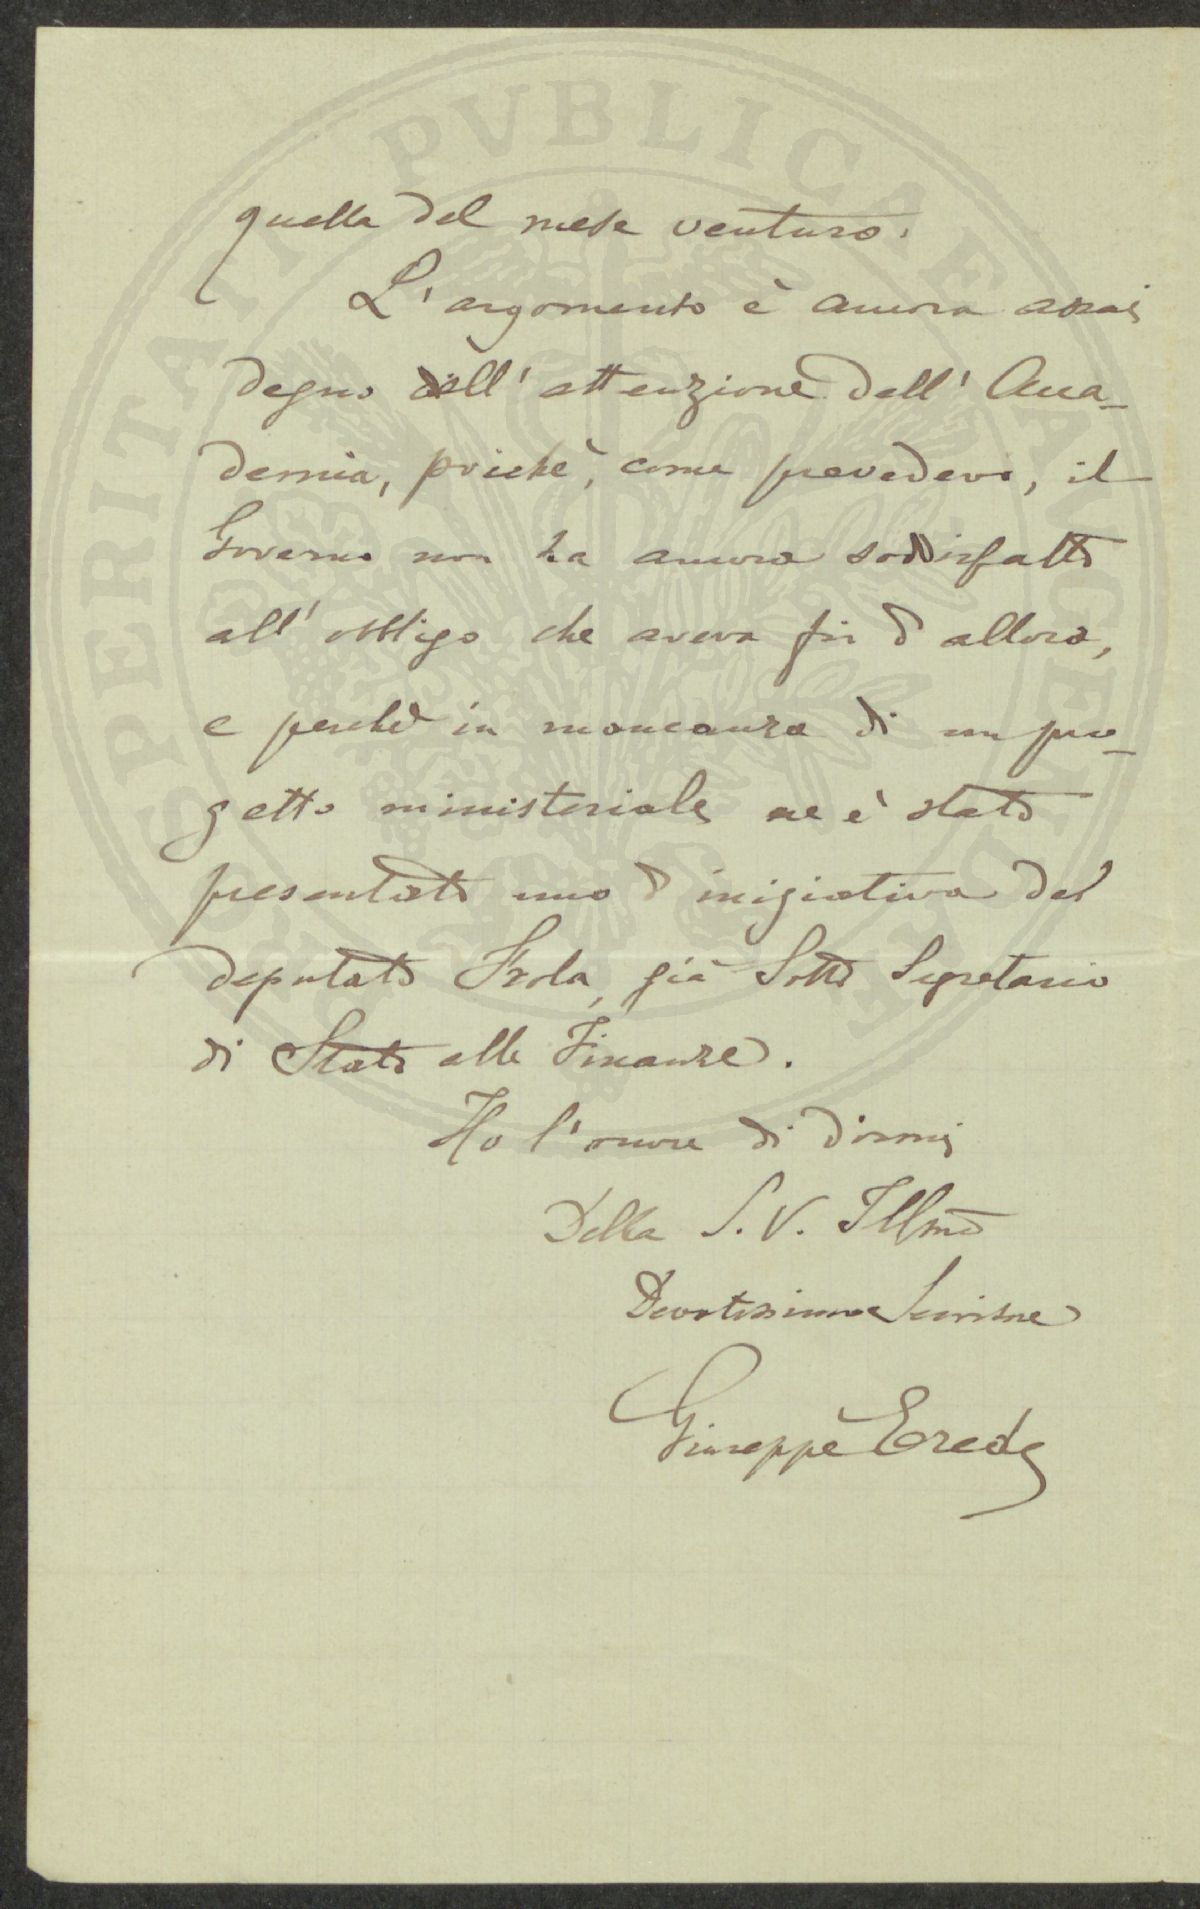 PROSPERITATI PVBLICAE AVGENDAE
quella del mese venturo.
L'argomento è ancora assai
degno dell'attenzione dell'Acca-
demia, poichè, come prevedevo, il
Governo non ha ancora soddisfatto
all'obbligo che aveva fin d'allora,
e perchè in mancanza di un pro-
getto ministeriale ne è stato
presentato uno d'iniziativa del
deputato Frola, già Sotto Segretario
di Stato alle Finanze.
Ho l'onore di dirmi
Della S. V. Illma
Devotissimo
Giuseppe Erede